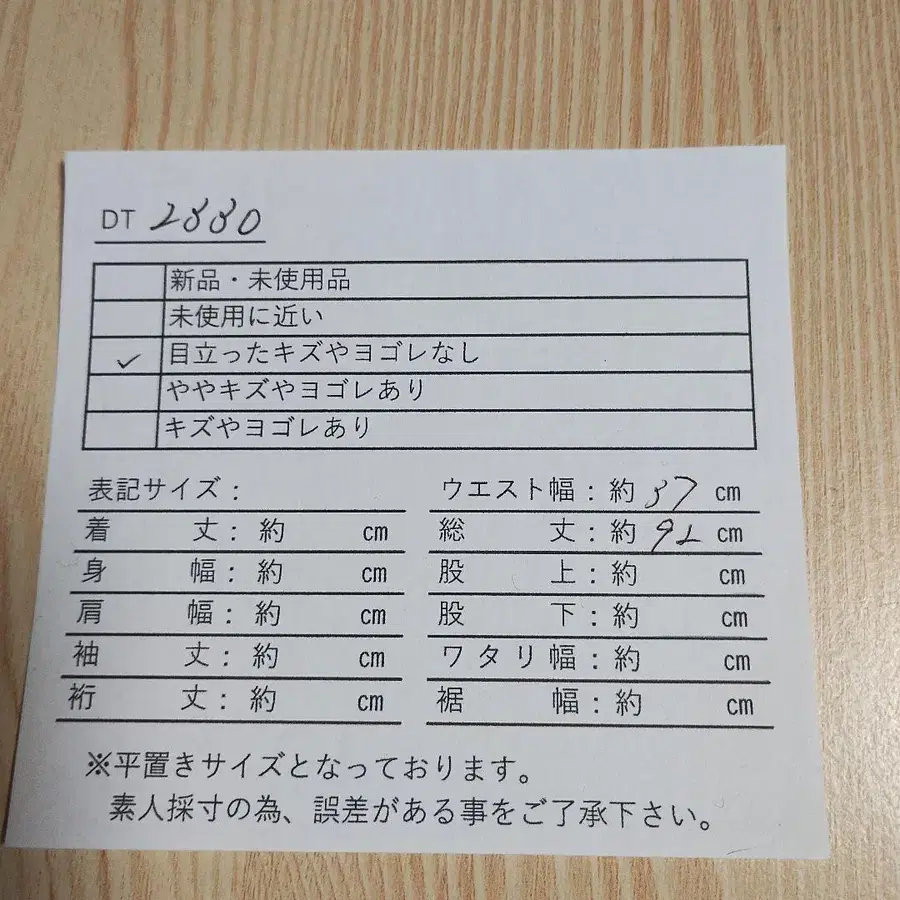 DT 2880
新品・未使用品
未使用に近い
✓ 目立ったキズやヨゴレなし
ややキズやヨゴレあり
キズやヨゴレあり
表記サイズ：
着丈：約 cm
身幅：約 cm
肩幅：約 cm
袖丈：約 cm
裄丈：約 cm
ウエスト幅：約 37 cm
総丈：約 92 cm
股上：約 cm
股下：約 cm
ワタリ幅：約 cm
裾幅：約 cm
※平置きサイズとなっております。
素人採寸の為、誤差がある事をご了承下さい。